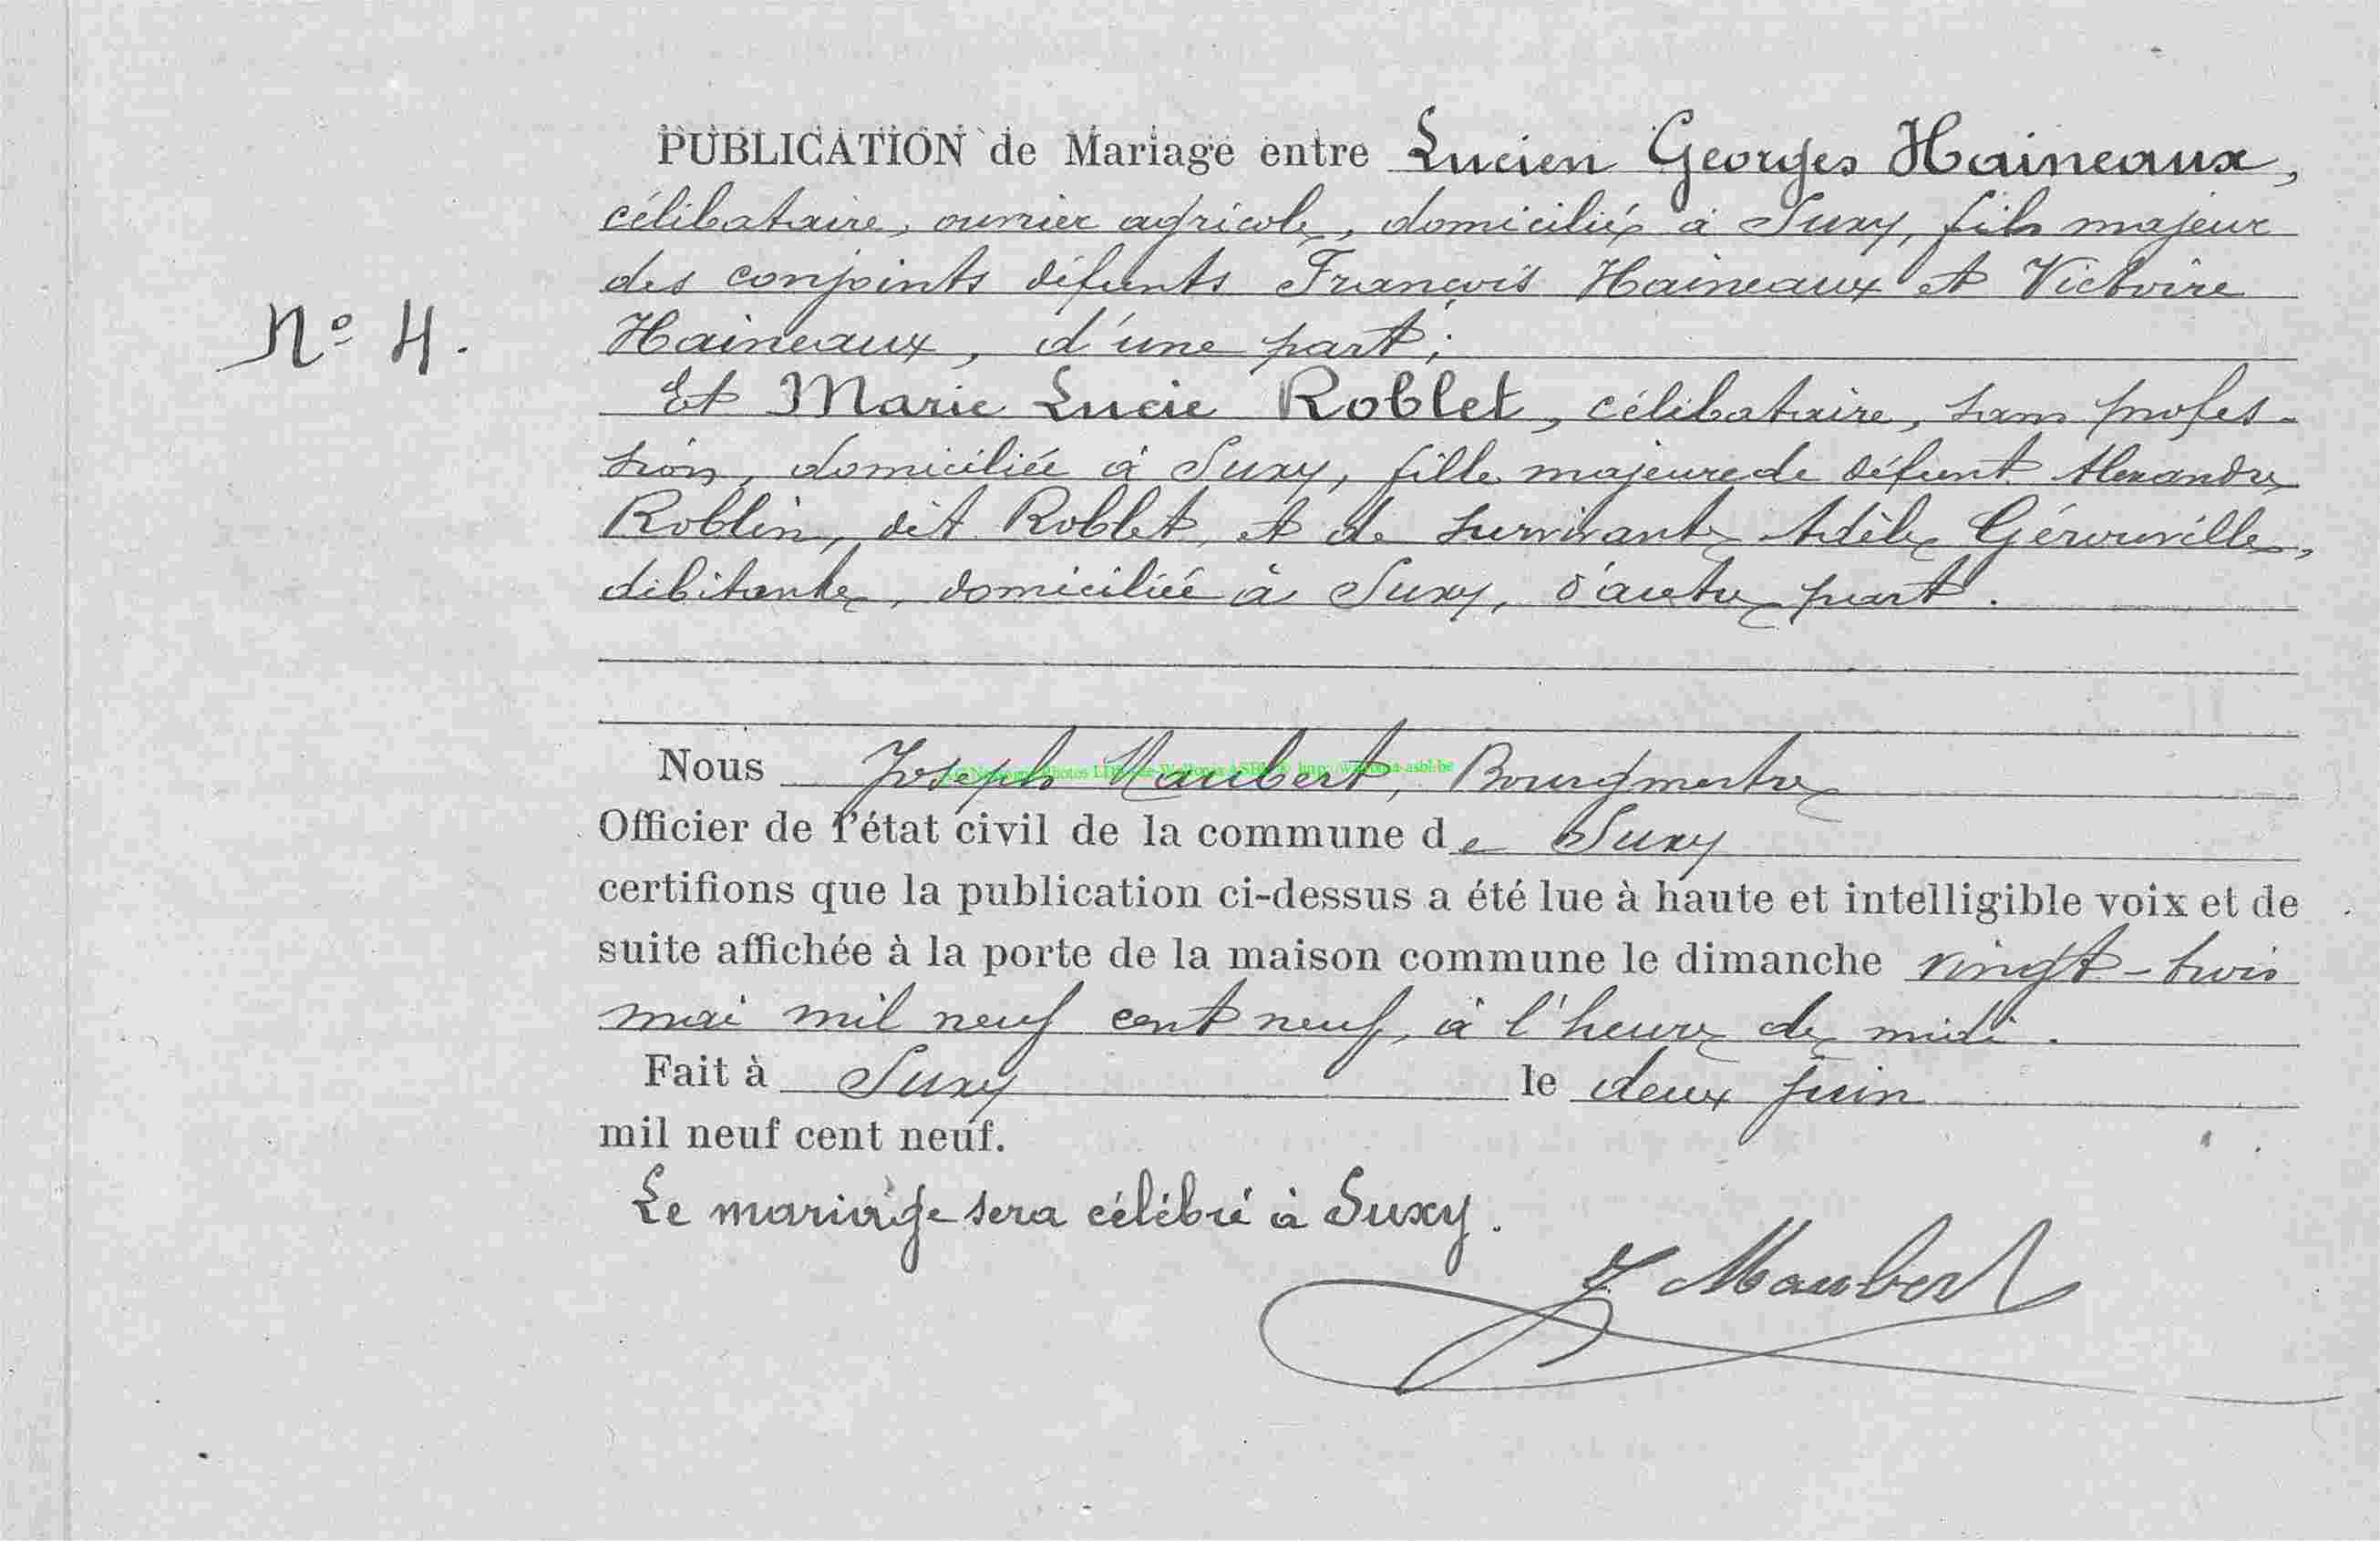 PUBLICATION de Mariage entre Lucien Georges Haineaux,
célibataire, ouvrier agricole, domicilié à Suxy, fils majeur
des conjoints défunts François Haineaux et Victoire
N° 4.
Haineaux, d'une part;
Et Marie Lucie Roblet, célibataire, sans profes-
sion, domiciliée à Suxy, fille majeure de défunt Alexandre
Roblin, dit Roblet, et de survivante Adèle Gérouville,
débitante, domiciliée à Suxy, d'autre part.
Nous Joseph Maubert, Bourgmestre
Officier de l'état civil de la commune de Suxy
certifions que la publication ci-dessus a été lue à haute et intelligible voix et de
suite affichée à la porte de la maison commune le dimanche vingt-trois
mai mil neuf cent neuf, à l'heure de midi.
Fait à Suxy le deux juin
mil neuf cent neuf.
Le mariage sera célébré à Suxy.
J Maubert